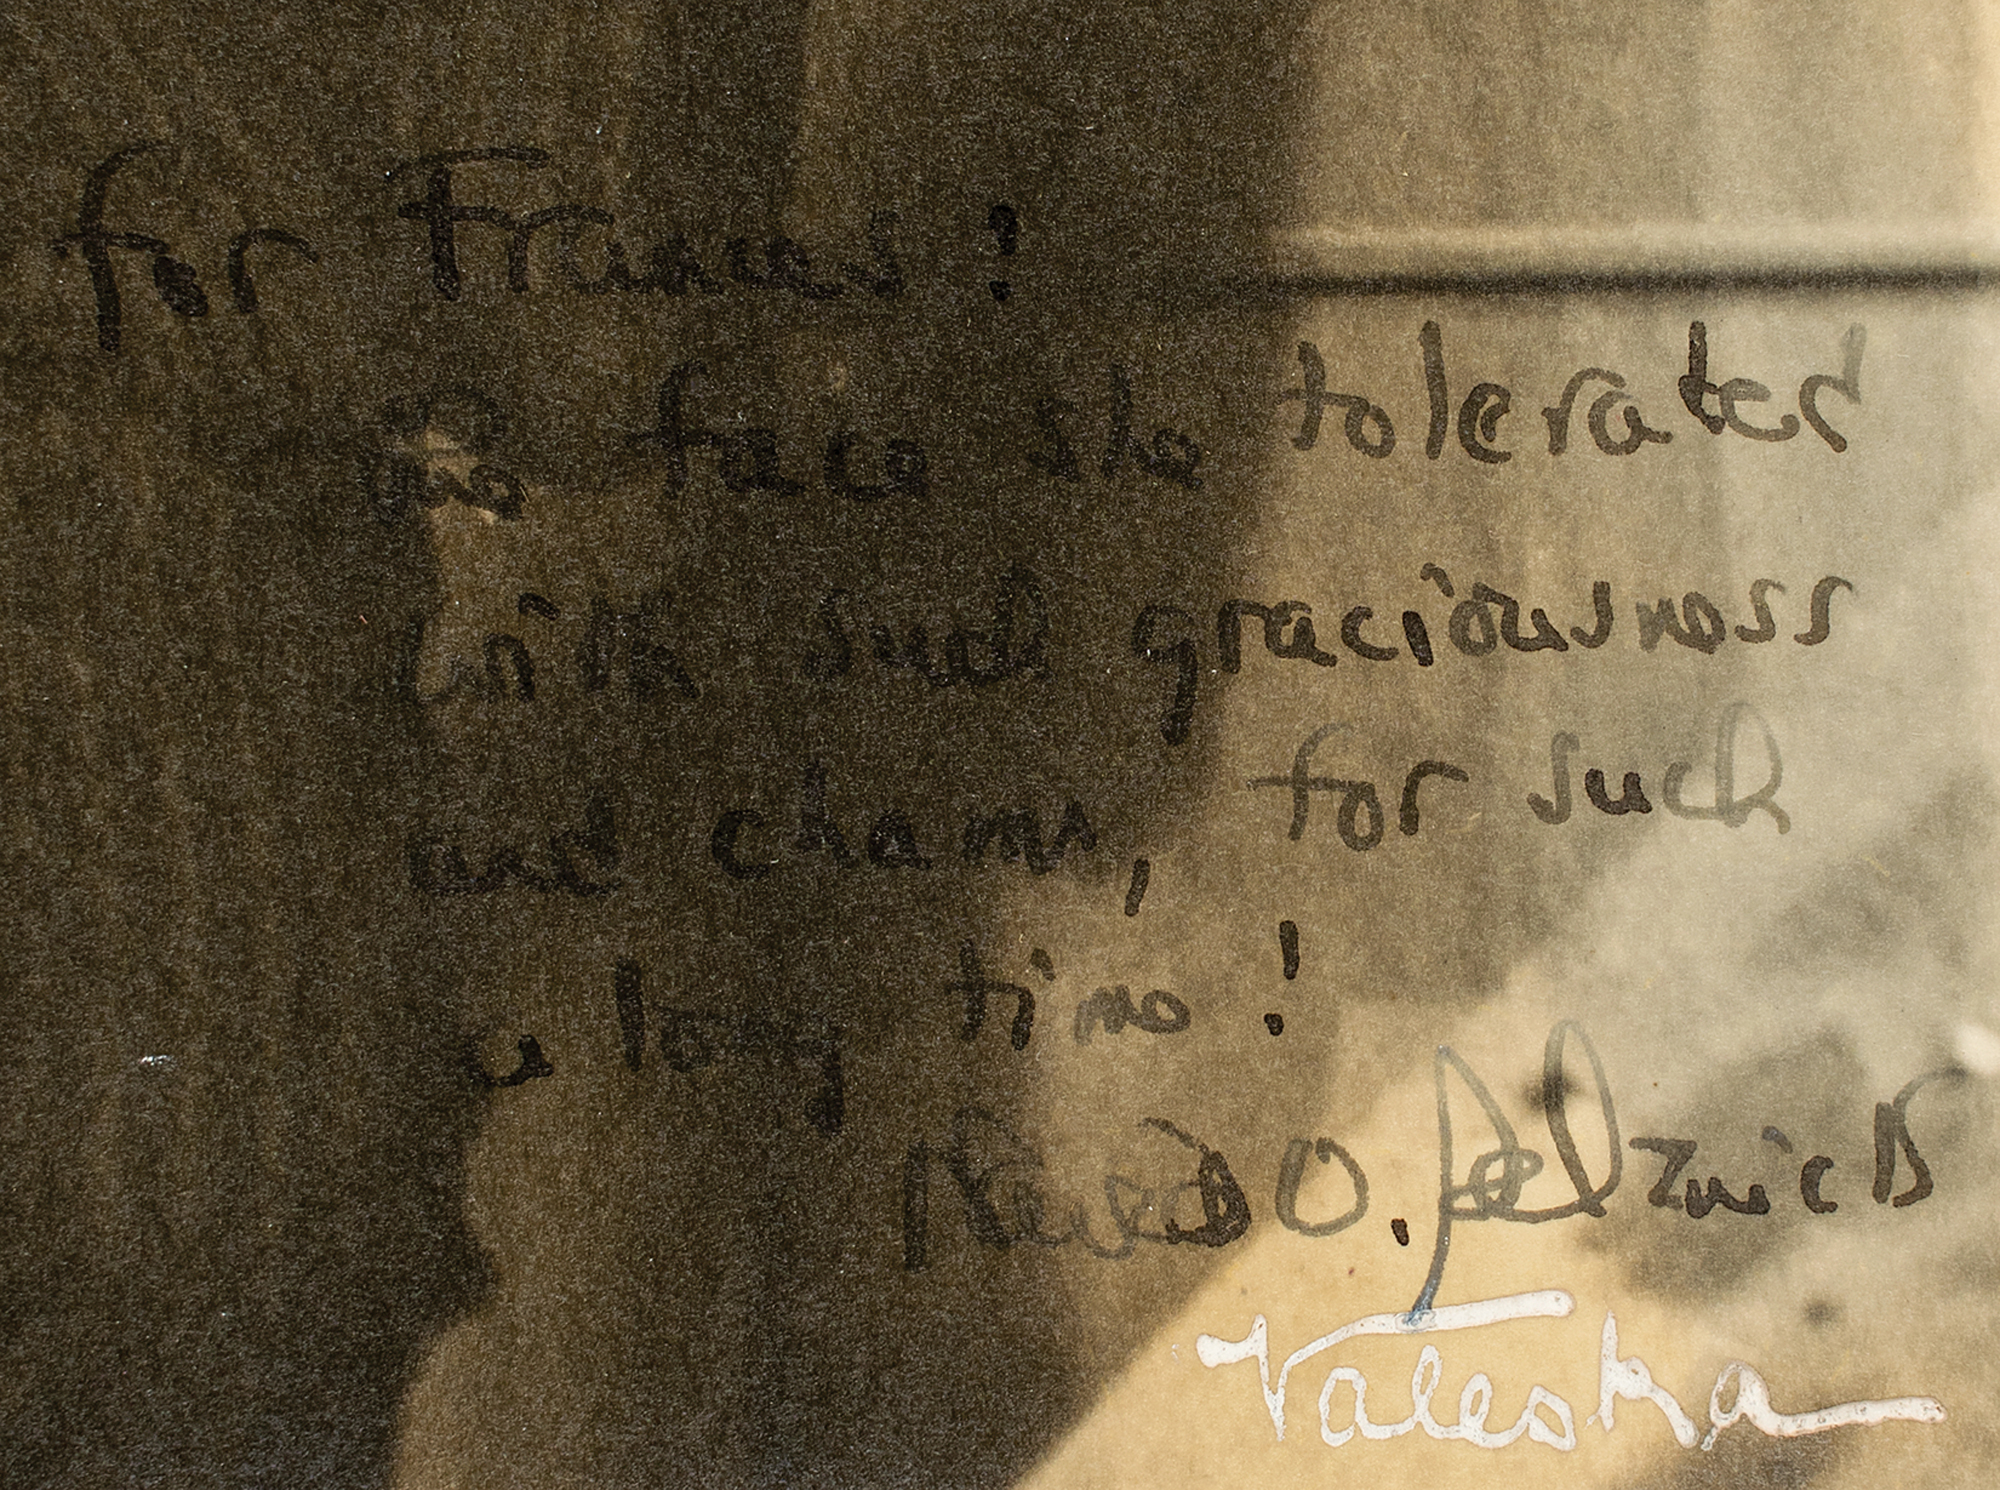 for Frances :
The face she tolerated
with such graciousness
and charm, for such
a long time !
David O. Selznick
Valeska